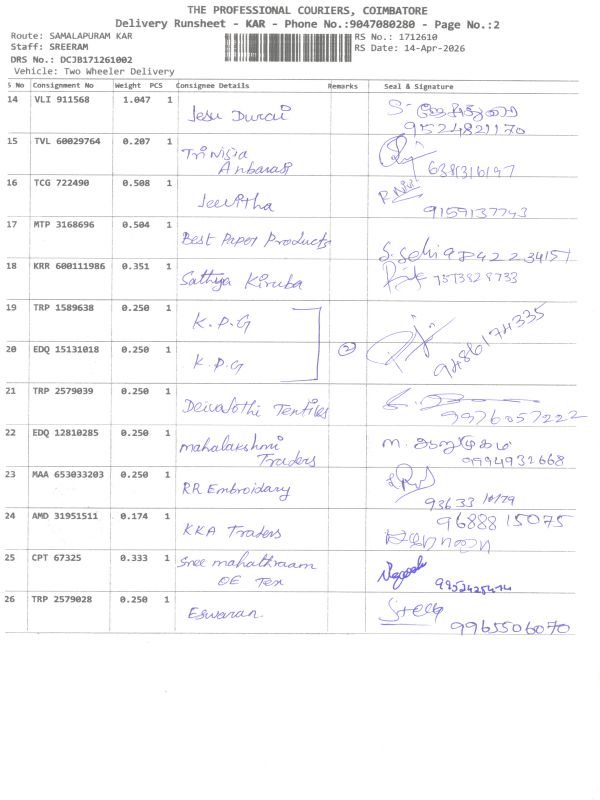 THE PROFESSIONAL COURIERS, COIMBATORE
Delivery Runsheet - KAR - Phone No.:9047080280 - Page No.:2
Route: SAMALAPURAM KAR RS No.: 1712610
Staff: SREERAM RS Date: 14-Apr-2026
DRS No.: DCJB171261002
Vehicle: Two Wheeler Delivery
S No Consignment No Weight PCS Consignee Details Remarks Seal & Signature
14 VLI 911568 1.047 1 Jesu Durai
9524821170
15 TVL 60029764 0.207 1 Trinisia
Anbarasi
16 TCG 722490 0.508 1 Jeevitha
9159137743
17 MTP 3168696 0.504 1 Best Paper Products
18 KRR 600111986 0.351 1 Sathya Kiruba
19 TRP 1589638 0.250 1 K.P.G
9486174335
20 EDQ 15131018 0.250 1 K.P.G 2
21 TRP 2579039 0.250 1 DeivaJothi Textiles
9976057222
22 EDQ 12810285 0.250 1 mahalakshmi
Traders 9994932668
23 MAA 653033203 0.250 1 RR Embroidary
24 AMD 31951511 0.174 1 KKA Traders 9688815075
25 CPT 67325 0.333 1 Sree mahathraam
OE Tex
26 TRP 2579028 0.250 1 Eswaran
9965506070